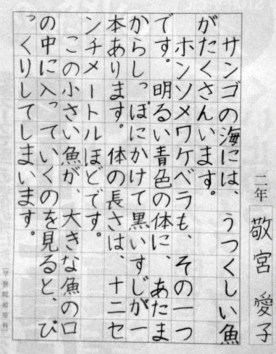 二年 敬宮 愛子
サンゴの海には、うつくしい魚
がたくさんいます。
ホンソメワケベラも、その一つ
です。明るい青色の体に、あたま
からしっぽにかけて黒いすじが一
本あります。体の長さは、十二セ
ンチメートルほどです。
この小さい魚が、大きな魚の口
の中に入っていくのを見ると、び
っくりしてしまいます。